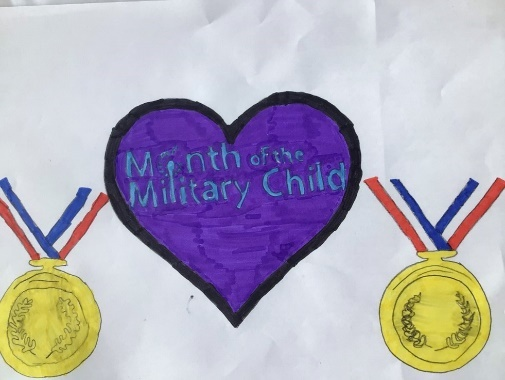 Month of the
Military Child